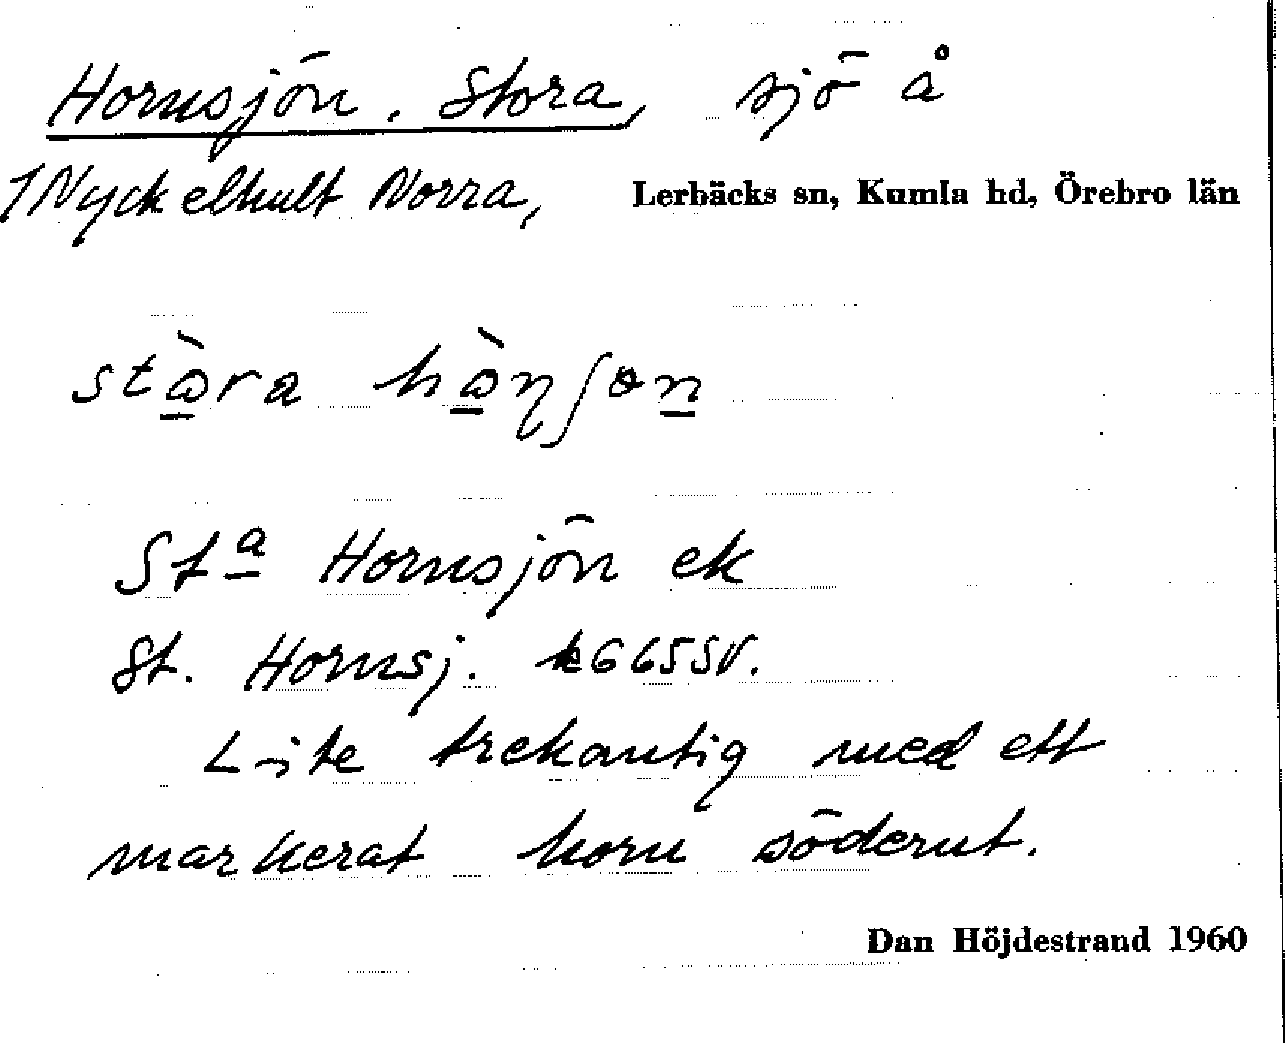 Hornsjön, Stora, sjö å
1 Nyckelhult Norra, Lerbäcks sn, Kumla hd, Örebro län
stⱥ̀ra
Stª Hornsjön ek
St. Hornsj. k66 5SV.
Lite trekantig med ett
markerat horn söderut.
Dan Höjdestrand 1960